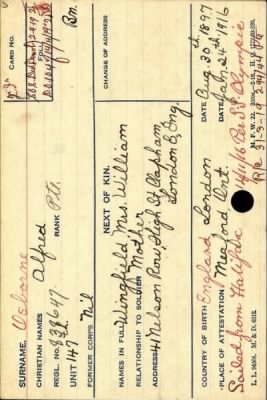 SURNAME. Osborne
CHRISTIAN NAMES Alfred
REGL. NO. 838647 RANK Pte
UNIT 147th Bn.
FORMER CORPS Nil
CARD NO.
FOLL
NEXT OF KIN.
NAMES IN FULL Wingfield Mrs. William
RELATIONSHIP TO SOLDIER Mother
ADDRESS 41 Nelson Row, High St Clapham
London E, Eng.
CHANGE OF ADDRESS
COUNTRY OF BIRTH England London DATE Aug. 30th 1897
PLACE OF ATTESTATION Meaford Ont. DATE Jan. 24th 1916
Sailed from Halifax 14/11/16 Per S.S. Olympic
L. L. 86501. M. & D. 6121. M. F. W. 22
R/c 31-3-